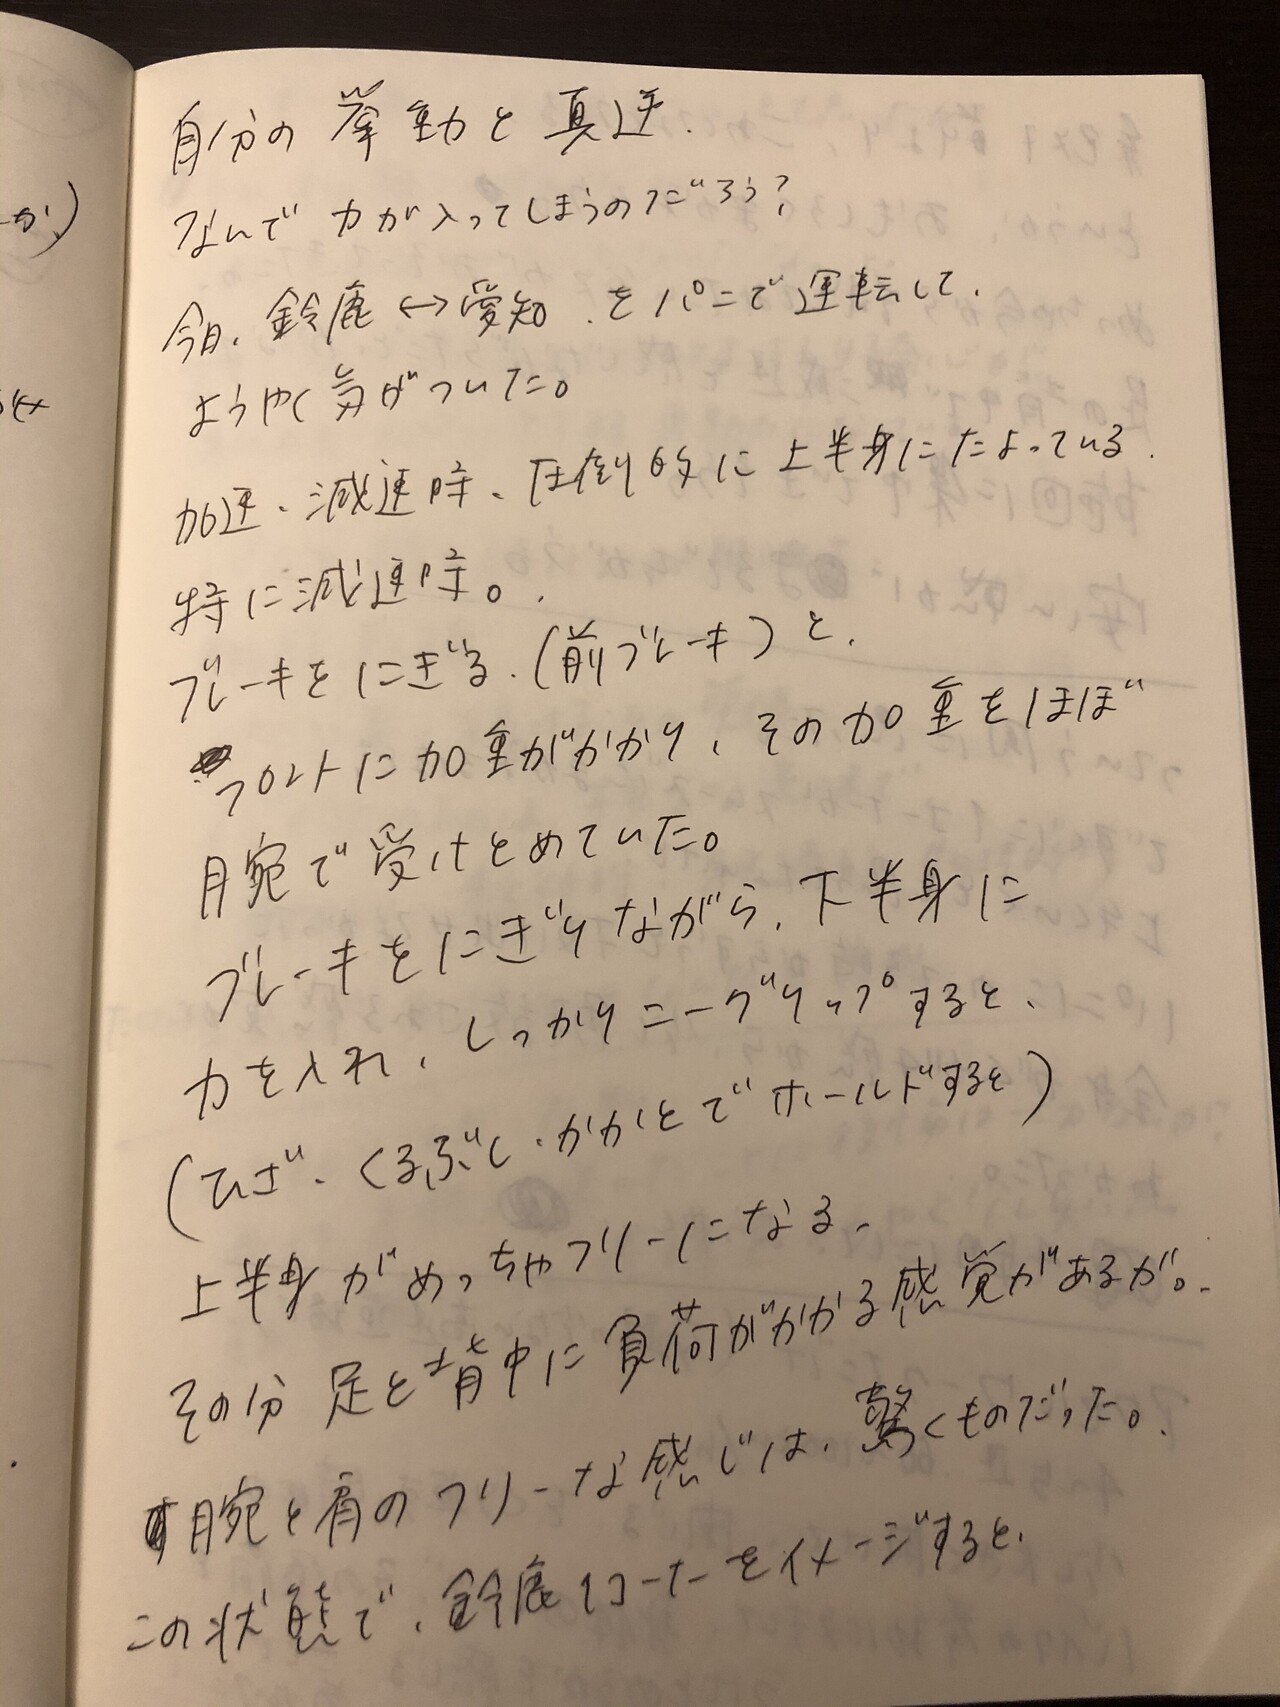 自分の挙動と真逆.
なんで力が入ってしまうのだろう?
今日、鈴鹿↔愛知、をパニで運転して、
ようやく気がついた。
加速、減速時、圧倒的に上半身にたよっている.
特に減速時。
ブレーキをにぎる.(前ブレーキ)と、
フロントに加重がかかり、その加重をほぼ
腕で受けとめていた。
ブレーキをにぎりながら、下半身に
力を入れ、しっかりニーグリップすると、
(ひざ、くるぶし・かかとでホールドすると)
上半身がめっちゃフリーになる.
その分足と背中に負荷がかかる感覚があるが。
腕と肩のフリーな感じは、驚くものだった。
この状態で、鈴鹿1コーナーをイメージすると、
か)